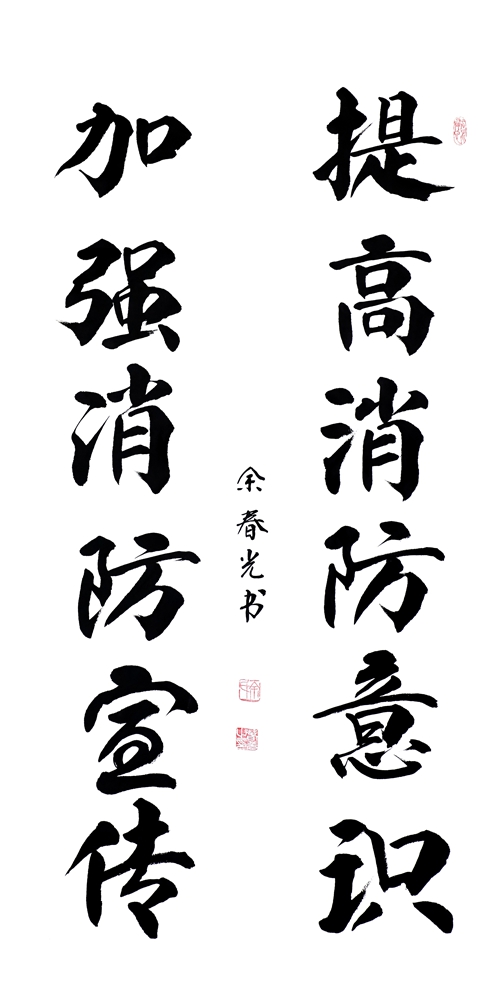 提高消防意识
加强消防宣传
余春光书